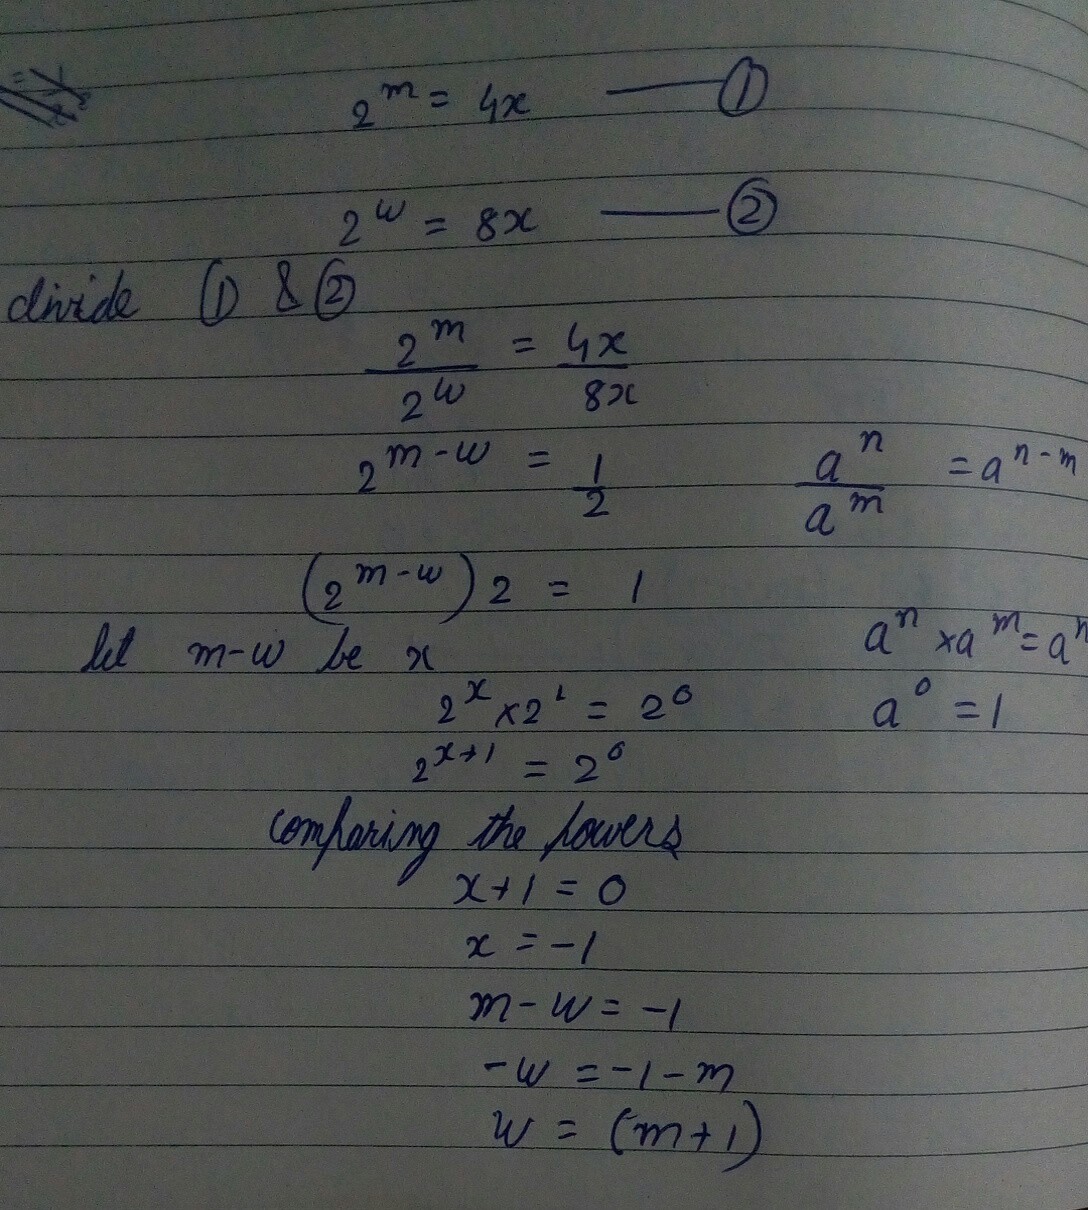 2^m = 4x —— ①
2^w = 8x —— ②
divide ① & ②
2^m / 2^w = 4x / 8x
2^(m-w) = 1/2    a^n / a^m = a^(n-m)
(2^(m-w)) 2 = 1
let m-w be x    a^n × a^m = a^n
2^x × 2^1 = 2^0    a^0 = 1
2^(x+1) = 2^0
comparing the powers
x+1 = 0
x = -1
m - w = -1
-w = -1-m
w = (m+1)